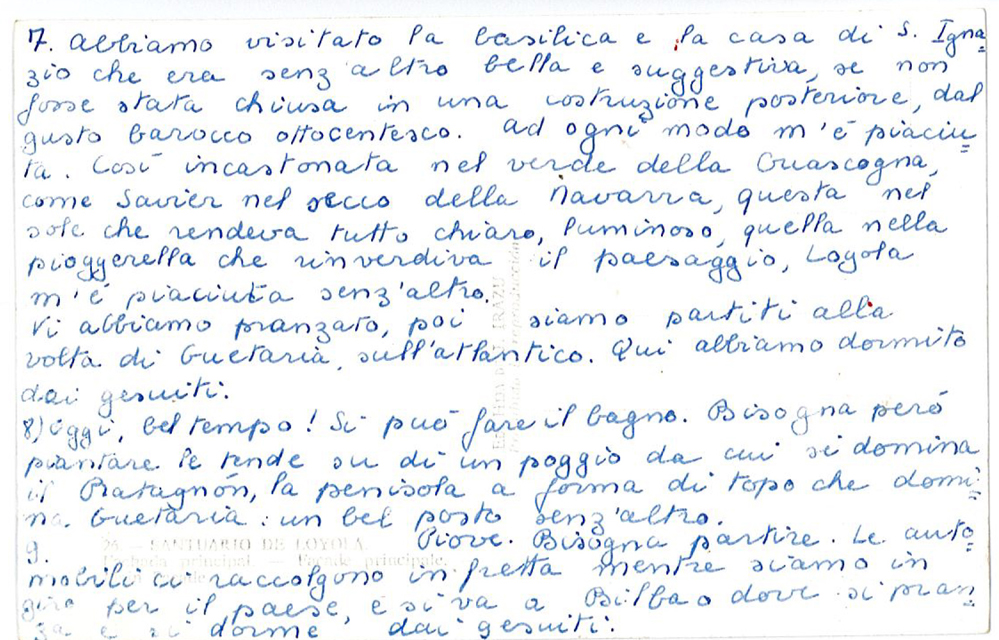 7. Abbiamo visitato la basilica e la casa di S. Igna=
zio che era senz'altro bella e suggestiva, se non
fosse stata chiusa in una costruzione posteriore, dal
gusto barocco ottocentesco. Ad ogni modo m'é piaciu=
ta. Cosí incastonata nel verde della Guascogna,
come Savier nel secco della Navarra, questa nel
sole che rendeva tutto chiaro, luminoso, quella nella
pioggerella che rinverdiva il paesaggio, Loyola
m'é piaciuta senz'altro.
Vi abbiamo pranzato, poi siamo partiti alla
volta di Guetaria, sull'atlantico. Qui abbiamo dormito
dai gesuiti.
8) Oggi, bel tempo! Si puó fare il bagno. Bisogna peró
piantare le tende su di un poggio da cui si domina
il Ratagnón, la penisola a forma di topo che domi=
na. Guetaria: un bel posto senz'altro.
9. Piove. Bisogna partire. Le auto=
mobili ci raccolgono in fretta mentre siamo in
giro per il paese, e si va a Bilbao dove si pran=
za e si dorme dai gesuiti.
26 — SANTUARIO DE LOYOLA.
Fachada principal. — Façade principale.